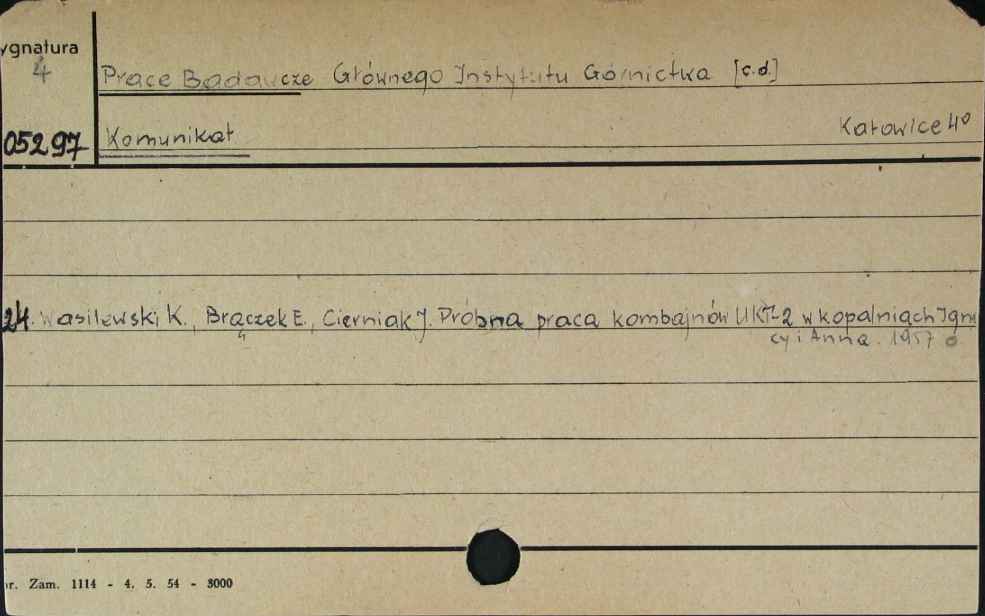 ygnatura
4
Prace Badawcze Głównego Instytutu Górnictwa [c.d.]
05297 Komunikat Katowice 4º
214. Wasilewski K., Brączek E., Cierniak J. Próbna praca kombajnów UKT-2 w kopalniach Igna
cy i Anna. 1957
r. Zam. 1114 - 4. 5. 54 - 3000